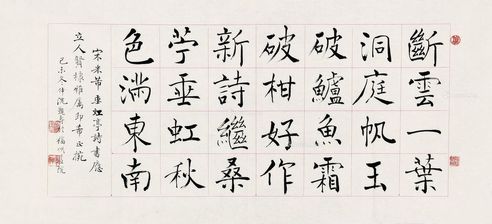 斷雲一葉
洞庭帆玉
破鱸魚霜
破柑好作
新詩繼桑
苧垂虹秋
色滿東南
宋米芾垂虹亭詩書應
立人賢棣雅屬即希正
己未冬仲沈